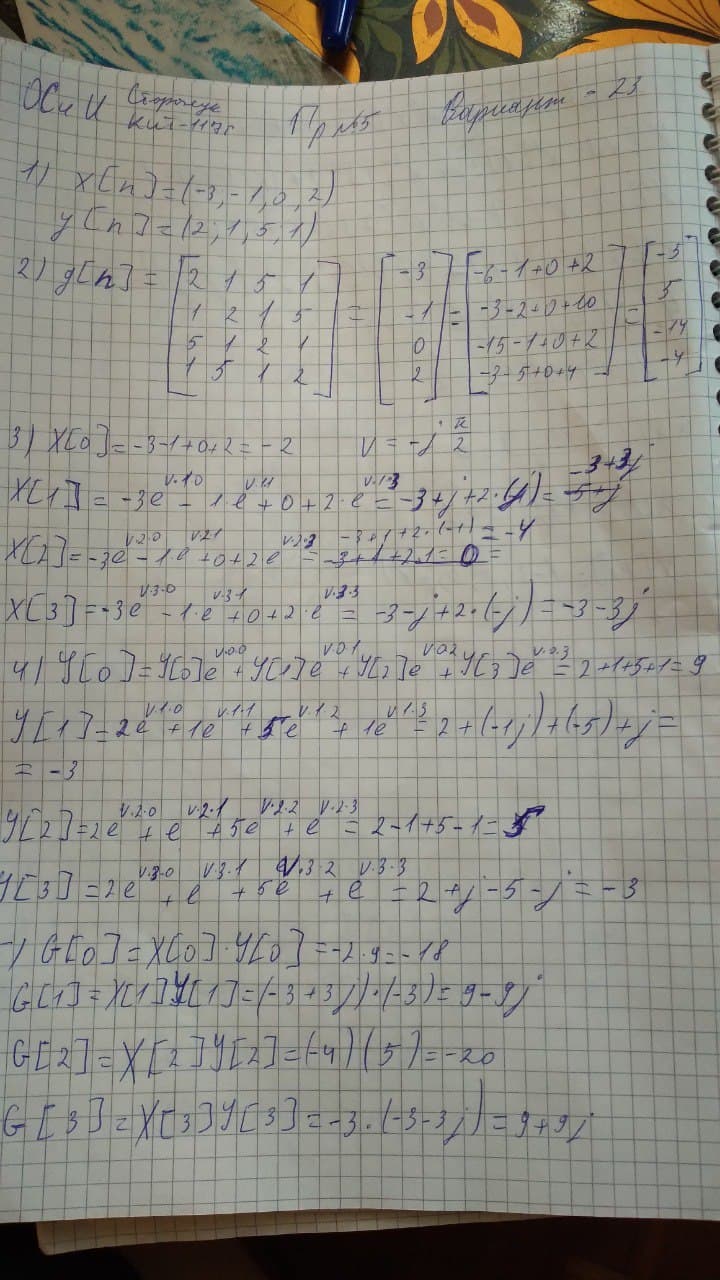 ОСиИ Сторожук КИТ-117б Пр №5 Вариант - 23
1) x[n]=(-3,-1,0,2)
y[n]=(2,1,5,1)
2) g[n] = [2 1 5 1] = [-3] = [-6-1+0+2] = [-5]
[1 2 1 5] [-1] [-3-2+0+10] [5]
[5 1 2 1] [0] [-15-1+0+2] [-14]
[1 5 1 2] [2] [-3-5+0+4] [-4]
3) X[0]=-3-1+0+2=-2 V=-j π/2
X[1]=-3e^{V·1·0}-1·e^{V·1·1}+0+2·e^{V·1·3}=-3+j+2·(j)=-3+3j
X[2]=-3e^{V·2·0}-1·e^{V·2·1}+0+2e^{V·2·3}=-3+1+2·(-1)=-4
X[3]=-3e^{V·3·0}-1·e^{V·3·1}+0+2·e^{V·3·3}=-3-j+2·(-j)=-3-3j
4) Y[0]=Y[0]e^{V·0·0}+Y[1]e^{V·0·1}+Y[2]e^{V·0·2}+Y[3]e^{V·0·3}=2+1+5+1=9
Y[1]=2e^{V·1·0}+1e^{V·1·1}+5e^{V·1·2}+1e^{V·1·3}=2+(-1j)+(-5)+j=
=-3
Y[2]=2e^{V·2·0}+e^{V·2·1}+5e^{V·2·2}+e^{V·2·3}=2-1+5-1=5
Y[3]=2e^{V·3·0}+e^{V·3·1}+5e^{V·3·2}+e^{V·3·3}=2+j-5-j=-3
G[0]=X[0]·Y[0]=-2·9=-18
G[1]=X[1]Y[1]=(-3+3j)·(-3)=9-9j
G[2]=X[2]Y[2]=(-4)(5)=-20
G[3]=X[3]Y[3]=-3·(-3-3j)=9+9j